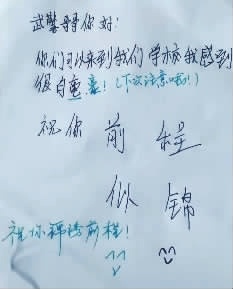 武警哥哥你好:
你们可以来到我们学校我感到
很自豪!(下次注意哦!)
祝你前程
似锦
祝你锦绣前程!